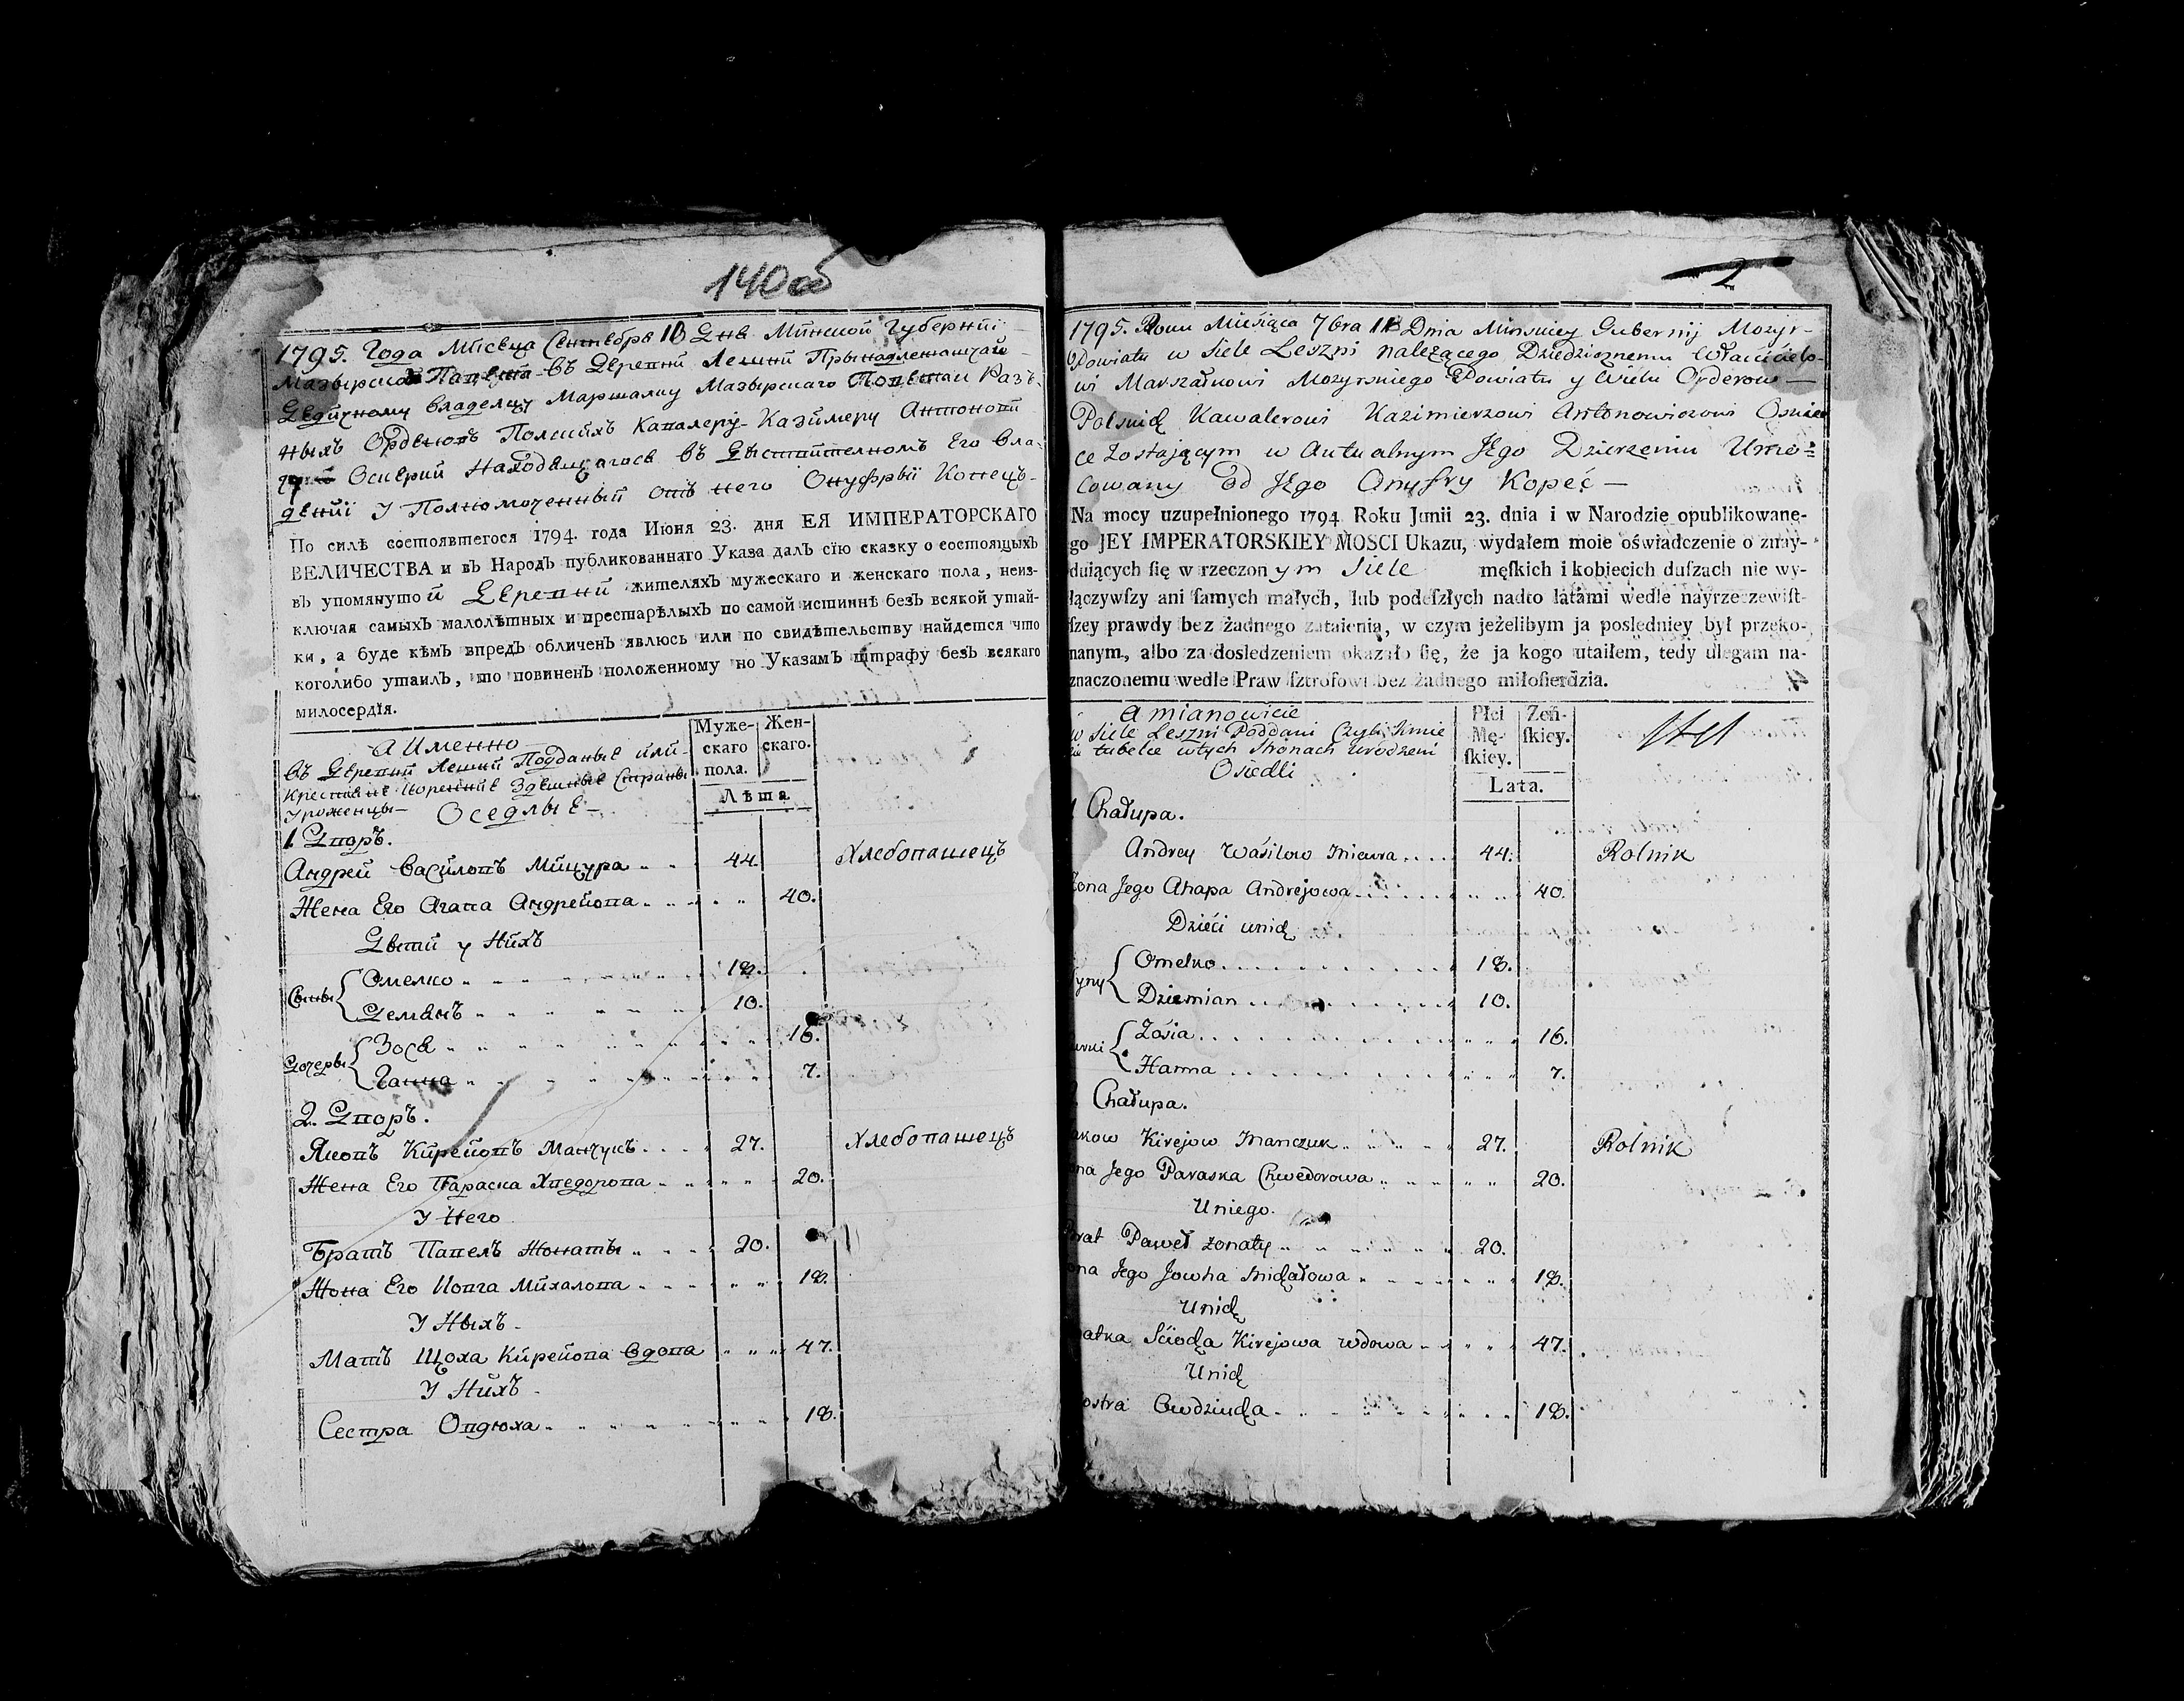 140об
1795. Года Мисеца Сентебра 18 Дня Минской Губернии
Мазырского Павета въ Деревни Лешни Прынадлежащай
Дедичному владелцу Маршалку Мазырскаго Поветаи Разъ-
ныхъ Орденовъ Полскихъ Кавалеру Казимеру Антонови
Оскерки Находящагося въ Действителномъ Его вла-
дении У Полномоченный отъ него Онуфрый Копецъ-
По силѣ состоявшегося 1794. года Июня 23. дня ЕЯ ИМПЕРАТОРСКАГО
ВЕЛИЧЕСТВА и въ Народъ публикованнаго Указа далъ сїю сказку о состоящыхъ
въ упомянутой Деревни жителяхъ мужескаго и женскаго пола, неиз-
ключая самыхъ малолѣтныхъ и престарѣлыхъ по самой истиннѣ безъ всякой утай-
ки, а буде кѣмъ впредъ обличенъ явлюсь или по свидѣтельству найдется что
коголибо утаилъ, то повиненъ положенному по Указамъ штрафу безъ всякаго
милосердїя.
а Именно
въ Деревни Лешни Подданые или-
Крестяне Коренние Здешные Страны
Уроженцы-
Оседлые-
Муже-
скаго
пола.
Жен-
скаго.
Лѣта
1. Дворъ.
Андрей Василовъ Мицура 44. Хлебопашецъ
Жена Его Агапа Андрейова 40.
Дети у Нихъ
Сыны Омелко 18.
Демянъ 10.
Дочеры Зося 16.
Ганна 7.
2. Дворъ.
Яковъ Кирейовъ Манчукъ 27. Хлебопашецъ
Жена Его Параска Хведорова 20.
У Него
Братъ Павелъ Жонаты 20.
Жона Его Иовга Михалова 18.
У Ныхъ-
Матъ Щоха Кирейова вдова 47.
У Нихъ-
Сестра Овдюха 18.
2
1795. Roku Miesiąca 7bra 18 Dnia Minskiey Gubernij Mozyr-
Powiatu w Siele Leszni Należącego Dziedzicznemu Właścicielo-
wi Marszałkowi Mozyrskiego Powiatu y Wielu Orderow
Polskich Kawalerowi Kazimierzowi Antonowiczowi Oskier
ce zostającym w Aktualnym Jego Dzierzeniu Umo-
cowany Od Jego Onufry Kopeć
Na mocy uzupełnionego 1794 Roku Junii 23. dnia i w Narodzie opublikowane-
go JEY IMPERATORSKIEY MOSCI Ukazu, wydałem moie oświadczenie o znay-
duiących ſię w rzeczonym Siele męſkich i kobiecich duſzach nie wy-
łączywſzy ani ſamych małych, lub podeſzłych nadto latami wedle nayrzeczewiſt-
ſzey prawdy bez żadnego zataienia, w czym jeżelibym ja posledniey był przeko-
nanym, albo za dosledzeniem okazało ſię, że ja kogo utaiłem, tedy ulegam na-
znaczonemu wedle Praw ſztrofowi bez żadnego miłoſierdzia.
a mianowicie
w Siele Leszni Poddani Czyli Kmie
cie tubelce wtych Stronach urodzeni
Osiedli
Płci
Mę-
ſkiey.
Żeń-
ſkiey.
Lata.
1 Chałupa.
Andrey Waśilow Micura 44. Rolnik
Żona Jego Ahapa Andrejowa 40.
Dzieći unich
Syny Omelko 18.
Dziemian 10.
Zośia 16.
Hanna 7.
2 Chałupa.
Jakow Kirejow Manczuk 27. Rolnik
Żona Jego Paraska Chwedorowa 20.
Uniego.
Brat Paweł żonaty 20.
Żona Jego Jowha Michałowa 18.
Unich
Matka Sciocha Kirejowa wdowa 47.
Unich
Siostra Owdziucha 18.